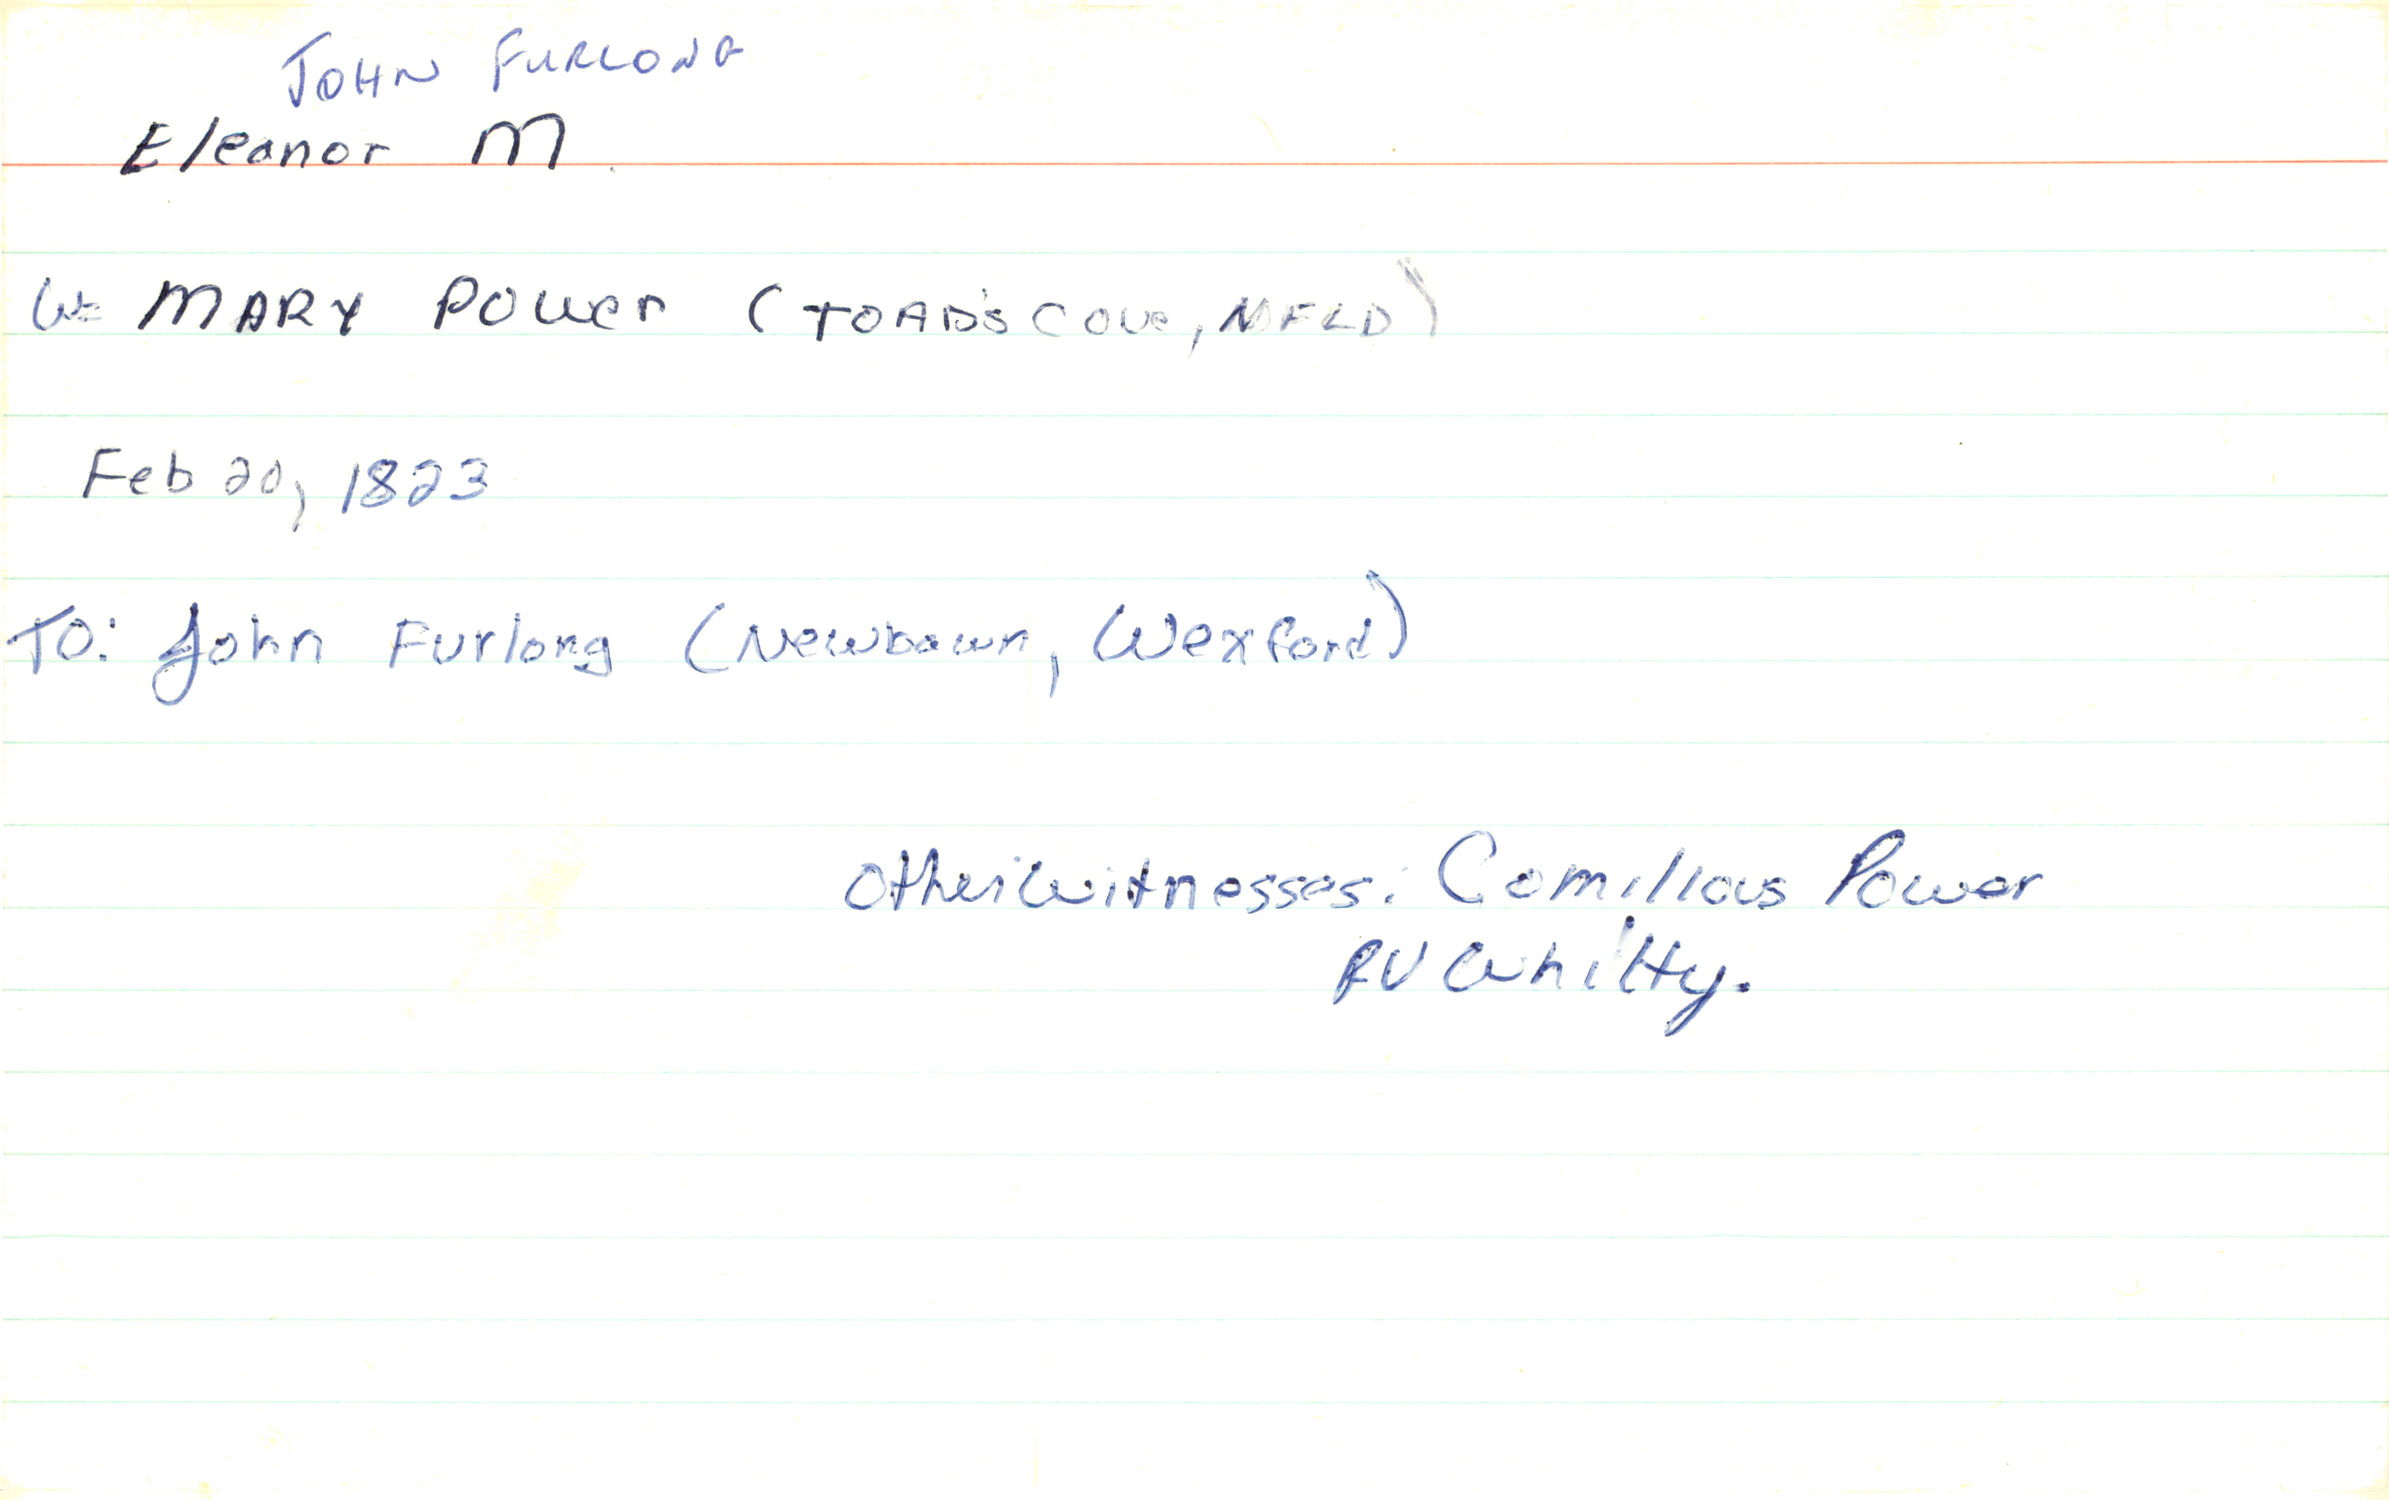 JOHN FURLONG
Eleanor M.
W= MARY Power (TOAD'S Cove, NFLD)
Feb 20, 1823
TO: John Furlong (Newbawn, Wexford)
Other Witnesses: Comillous Power
RV Whitty.